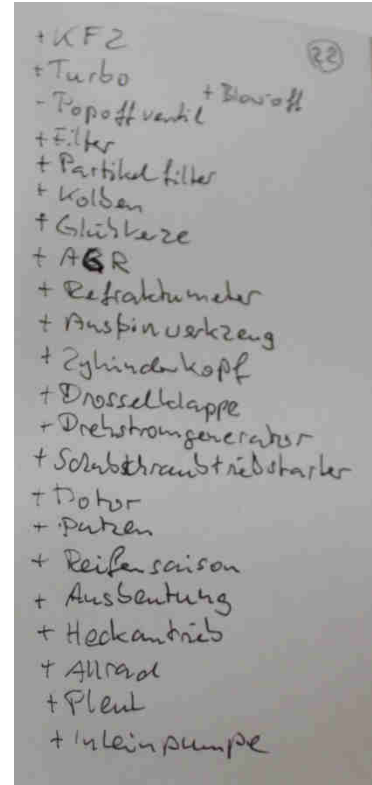 + KFZ
22
+ Turbo
+ Blowoff
- Popoffventil
+ Filter
+ Partikelfilter
+ Kolben
+ Glühkerze
+ AGR
+ Refraktumeter
+ Auspinwerkzeug
+ Zylinderkopf
+ Drosselklappe
+ Drehstromgenerator
+ Schubschraubtriebstarter
+ Motor
+ Putzen
+ Reifensaison
+ Ausbeutung
+ Heckantrieb
+ Allrad
+ Pleul